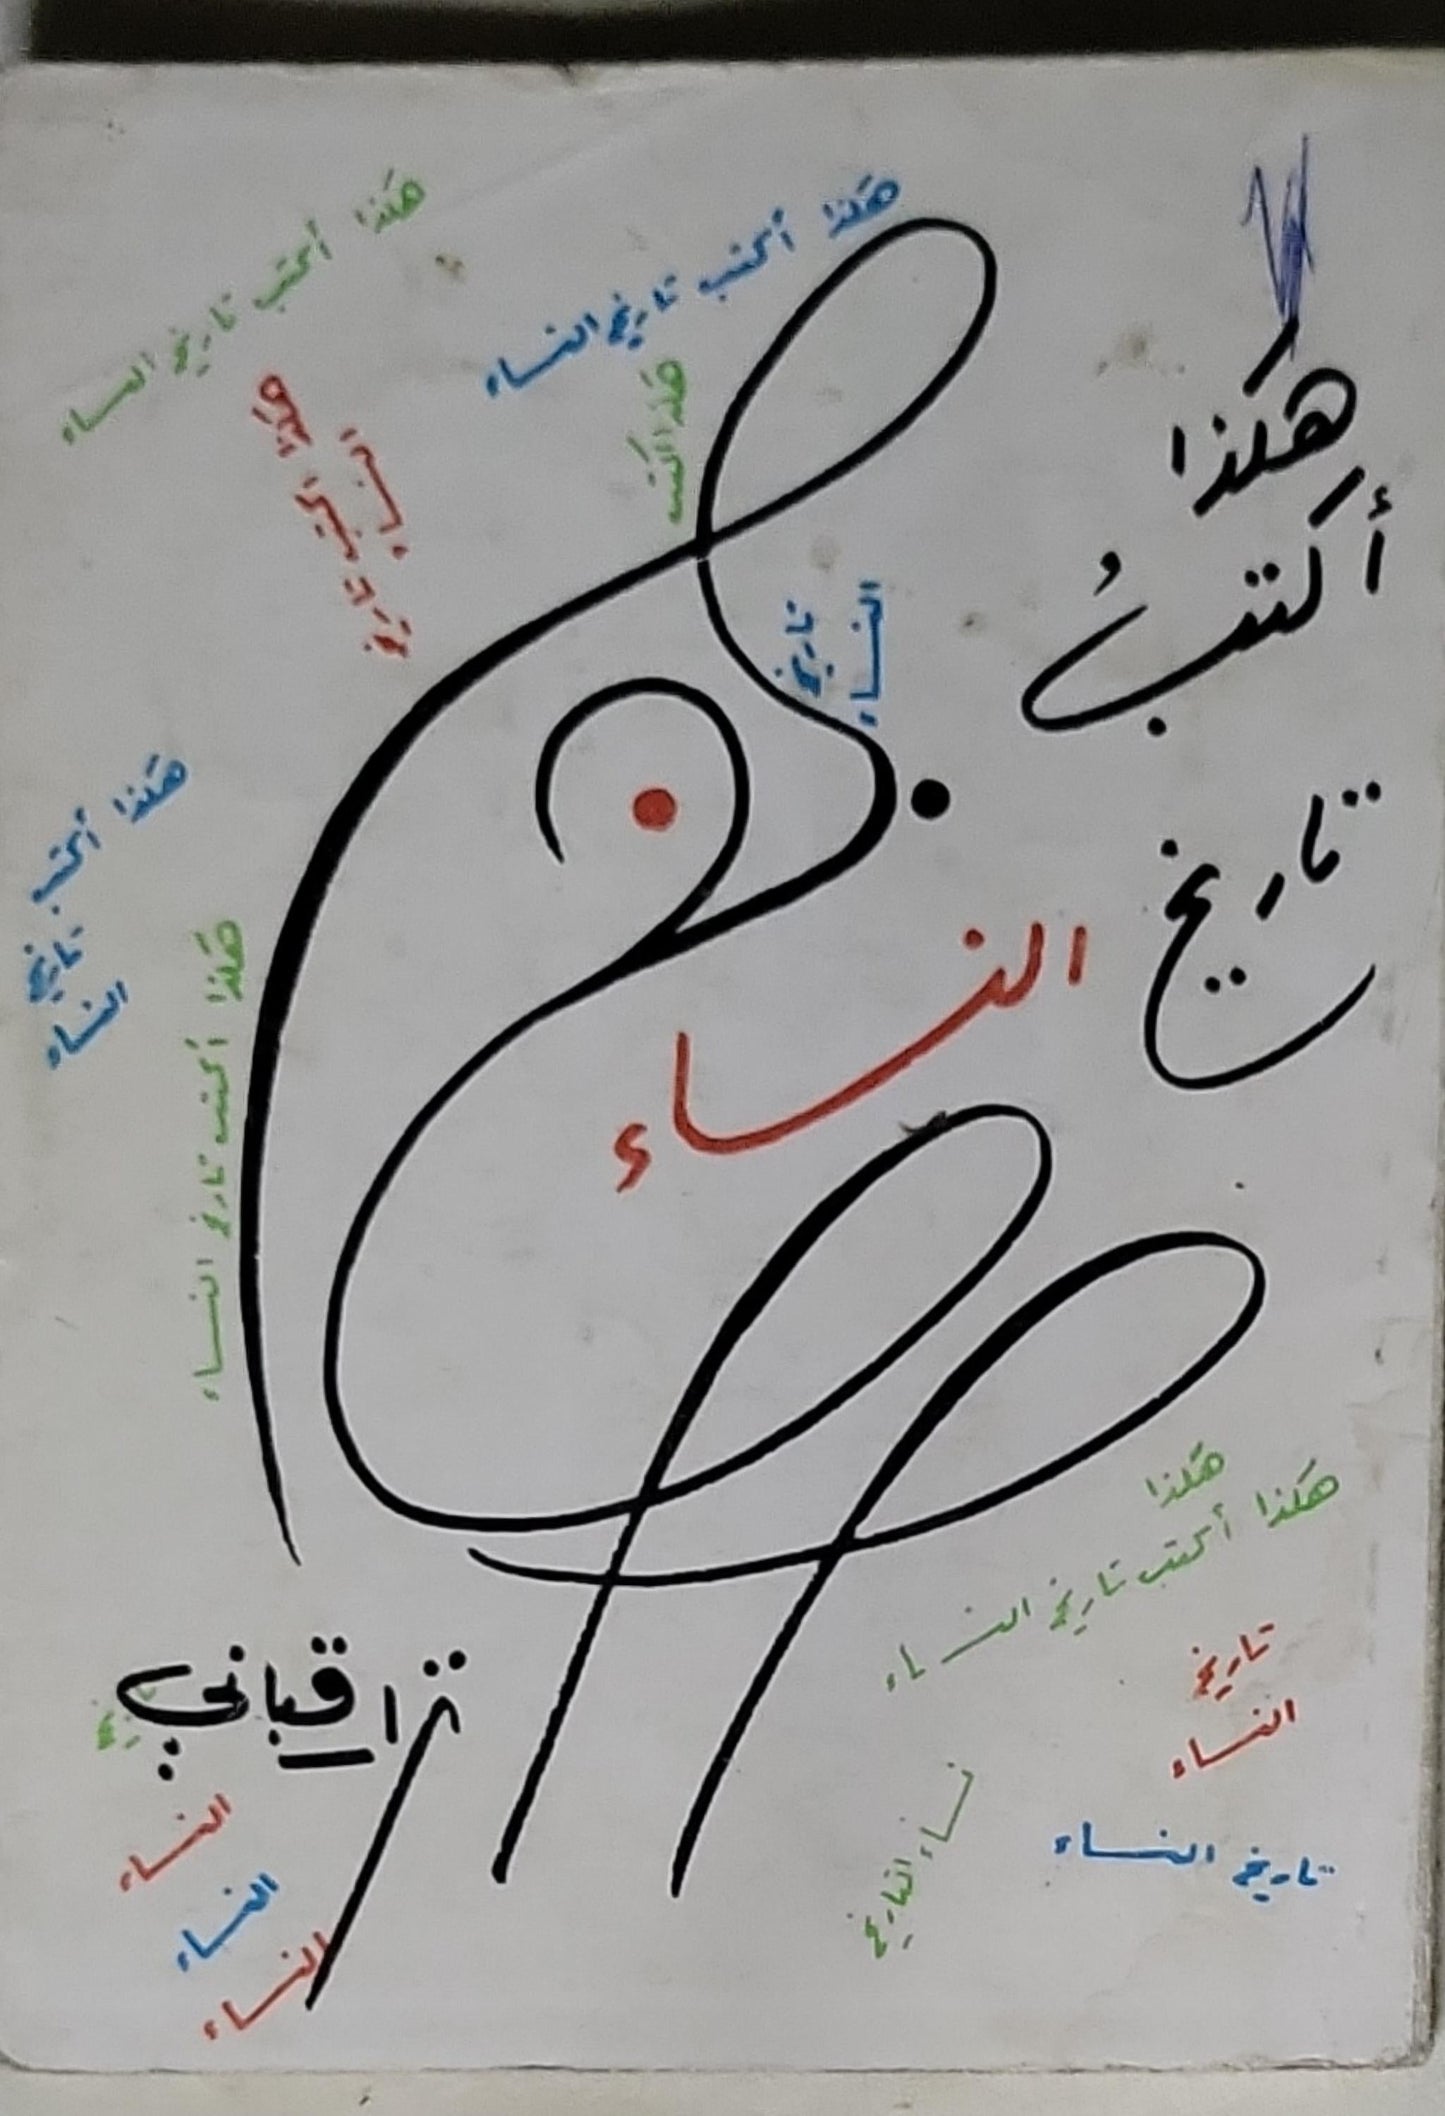 هَكَذا
أكتبُ
تاريخ
النساء
هَكَذا أكتب تاريخ النساء
هَكَذا أكتب تاريخ النساء
هَكَذا أكتب
تاريخ
النساء
هَكَذا أكتب
تاريخ
النساء
هَكَذا أكتب تاريخ النساء
هَكَذا
هَكَذا أكتب تاريخ النساء
تاريخ
النساء
تاريخ النساء
نساء التاريخ
نزار قباني
النساء
النساء
النساء